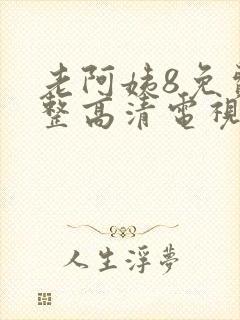 老阿姨8免費
整高清電視
人生浮夢